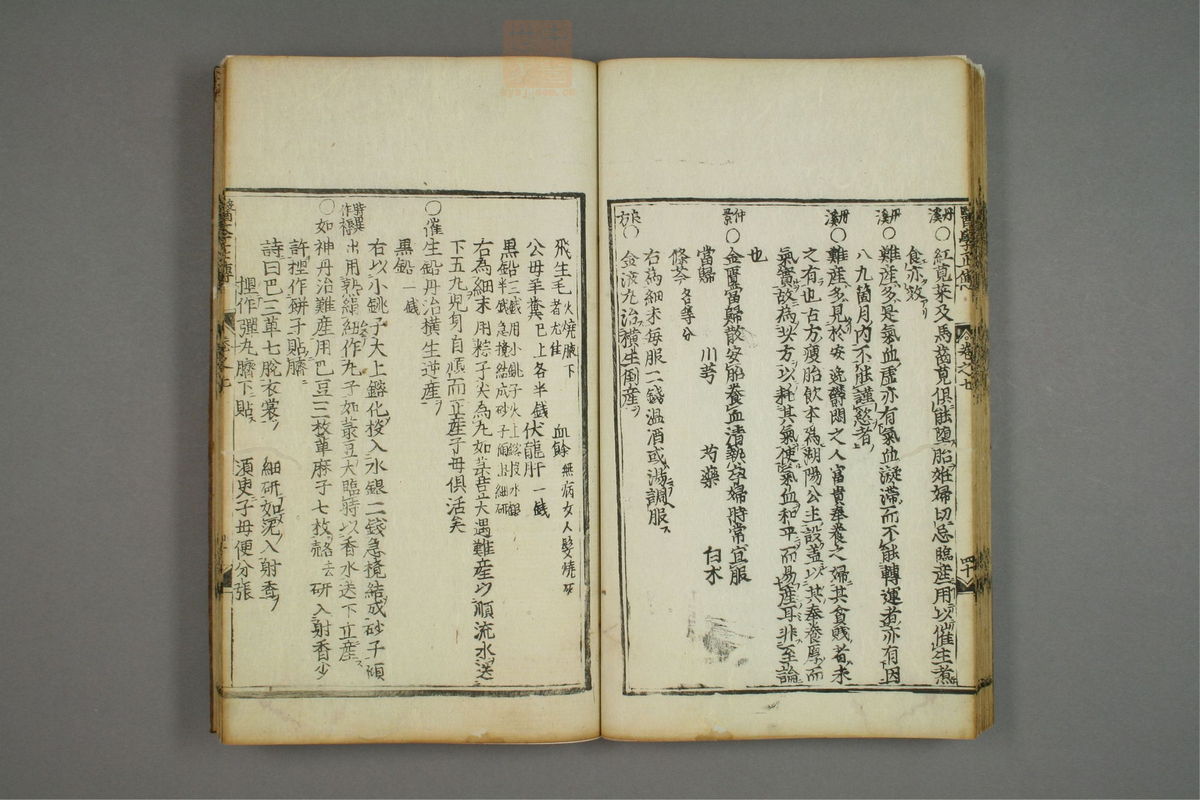 醫學正傳 卷之七 四十
丹溪 ○紅莧菜及馬齒莧俱能墮胎姙婦切忌臨産用以催生煮
食亦效
丹溪 ○難産多是氣血虛亦有氣血凝滯而不能轉運者亦有因
八九箇月内不能謹慾者
丹溪 ○難産多見於安逸鬱悶之人富貴奉養之婦其貧賤者未
之有也古方瘦胎飲本爲湖陽公主設盖以其奉養厚而
氣實故爲此方以耗其氣使氣血和平而易産耳非至論
也
仲景 ○金匱當歸散安胎養血清熱孕婦時常宜服
當歸 川芎 芍藥 白朮
條芩 各等分
右爲細末每服二錢温酒或湯調服
良方 ○金液丸治横生倒産
飛生毛 火燒腋下者尤佳 血餘 無病女人髮燒灰
公母羊糞 已上各半錢 伏龍肝 一錢
黒鉛 三錢用小銚子火上鎔投水銀半錢急攪結成砂子傾出細研
右爲細末用粽子尖爲丸如菉豆大遇難産以順流水送
下五丸兒身自順而正産子母俱活矣
○催生鉛丹治横生逆産
黒鉛 一錢
右以小銚子火上鎔化投入水銀二錢急攪結成砂子傾
出用熟絹紐作丸子如菉豆大臨時以香水送下立産
○如神丹治難産用巴豆三枚萆麻子七枚殻去研入射香少
許捏作餅子貼臍
詩曰巴三萆七脫衣裳 細研如泥入射香
捏作彈丸臍下貼 須臾子母便分張